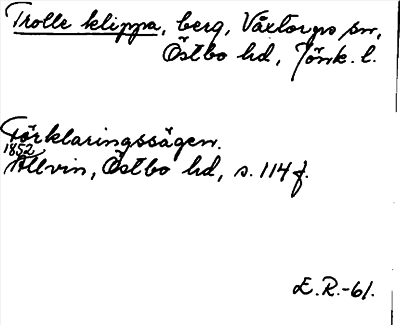 Trolle klippa, berg, Våxtorps sn,
Östbo hd, Jönk. l.
Förklaringssägen.
1852
Allvin, Östbo hd, s. 114 f.
E. R. -61.